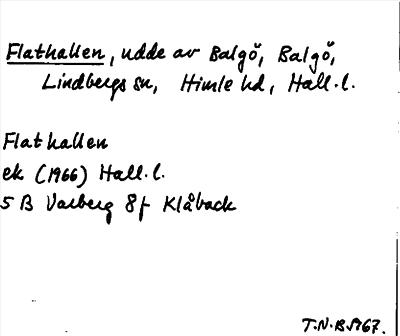 Flathallen, udde av Balgö, Balgö,
Lindbergs sn, Himle hd, Hall. l.
Flathallen
ek (1966) Hall. l.
5 B Varberg 8f Klåback
T.N.B. 1967.